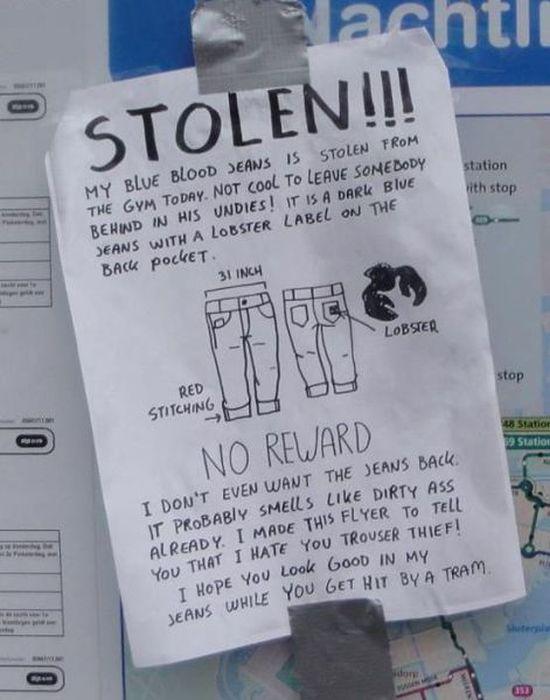 achtli
STOLEN!!!
MY BLUE BLOOD JEANS IS STOLEN FROM
THE GYM TODAY. NOT COOL TO LEAVE SOMEBODY
BEHIND IN HIS UNDIES! IT IS A DARK BLUE
JEANS WITH A LOBSTER LABEL ON THE
BACK POCKET.
31 INCH
LOBSTER
RED
STITCHING
NO REWARD
I DON'T EVEN WANT THE JEANS BACK.
IT PROBABLY SMELLS LIKE DIRTY ASS
ALREADY. I MADE THIS FLYER TO TELL
YOU THAT I HATE YOU TROUSER THIEF!
I HOPE YOU LOOK GOOD IN MY
JEANS WHILE YOU GET HIT BY A TRAM.
station
ith stop
stop
48 Station
69 Station
Sloterpla
353